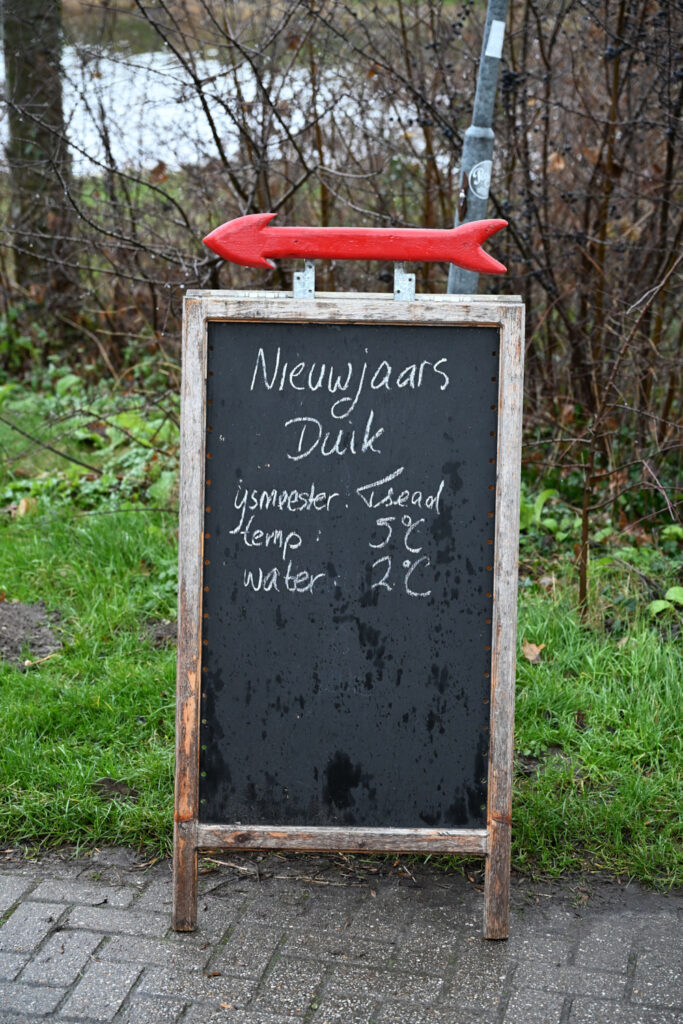 Nieuwjaars
Duik
ijsmeester: Tsead
temp: 5°C
water: 2°C